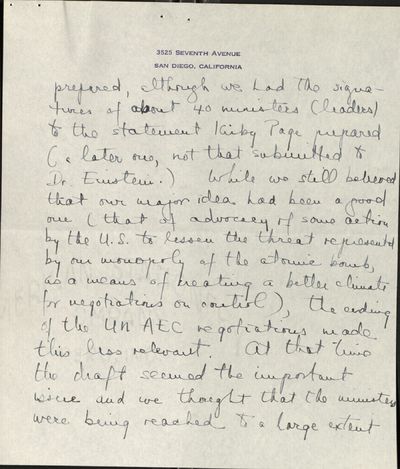 3525 SEVENTH AVENUE
SAN DIEGO, CALIFORNIA
prepared, although we had the signa-
tures of about 40 ministers (leaders)
to the statement Kirby Page prepared
(a later one, not that submitted to
Dr. Einstein.) While we still believed
that our major idea had been a good
one (that of advocacy of some action
by the U.S. to lessen the threat represented
by our monopoly of the atomic bomb,
as a means of creating a better climate
for negotiations on control), the ending
of the UN AEC negotiations made
this less relevant. At that time
the draft seemed the important
issue and we thought that the ministers
were being reached to a large extent